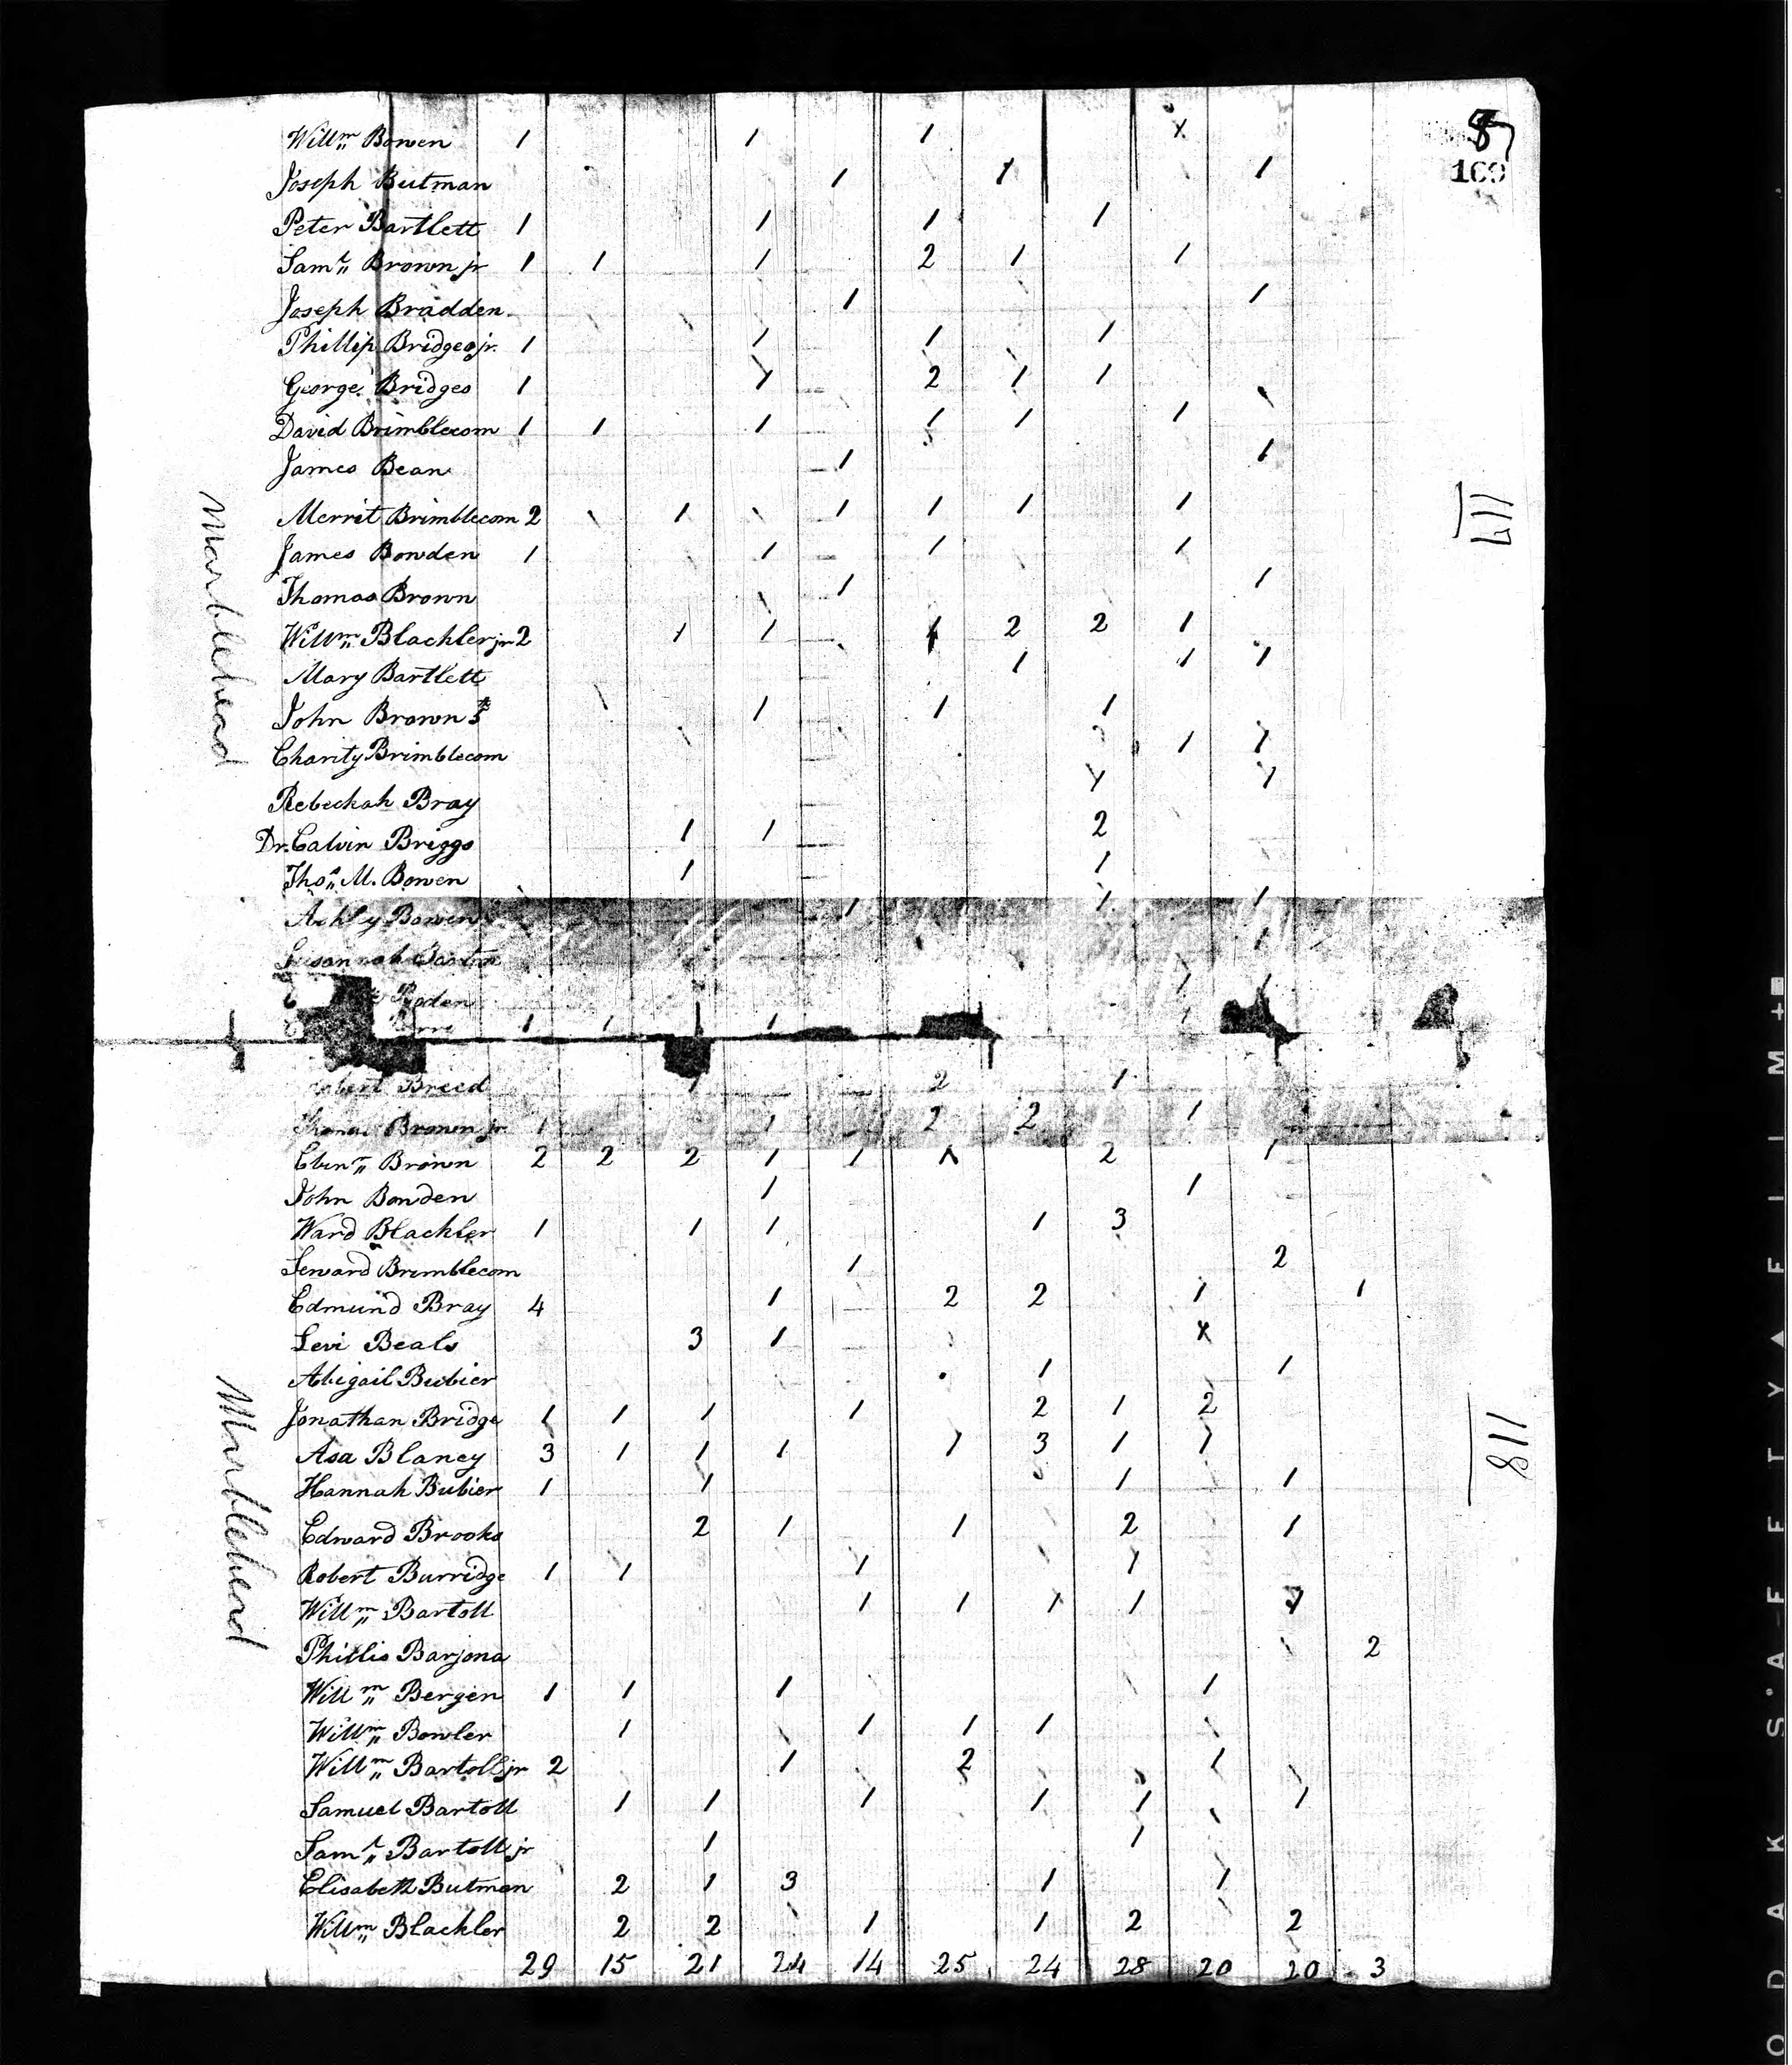 87
169
Willm Bowen 1 1 1 x
Joseph Butman 1 1 1
Peter Bartlett 1 1 1 1
Saml Brown jr 1 1 1 2 1 1
Joseph Bradden 1 1
Phillip Bridges jr. 1 1 1 1
George Bridges 1 1 2 1 1
David Brimblecom 1 1 1 1 1 1
James Bean 1 1
Merrit Brimblecom 2 1 1 1 1 1
117
James Bowden 1 1 1 1
Marblehead
Thomas Brown 1 1
Willm Blachler jr 2 1 1 1 2 2 1
Mary Bartlett 1 1 1
John Brown 3d 1 1 1
Charity Brimblecom 1 1
Rebeckah Bray 1 1
Dr. Calvin Briggs 1 1 2
Thos M. Bowen 1 1
Ashly Bowen 1 1 1
Susannah
1 1 1 1
Breed 1 2 1
Brown jr 1 1 2 2 1
Ebenr Brown 2 2 2 1 1 1 2 1
John Bowden 1 1
Ward Blachler 1 1 1 1 3
Seward Brimblecom 1 2
Edmund Bray 4 1 2 2 1 1
Levi Beals 3 1 x
Abigail Bubier 1 1
Jonathan Bridge 1 1 1 1 2 1 2
118
Asa Blaney 3 1 1 1 1 3 1 1
Hannah Bubier 1 1 1 1
Marblehead
Edward Brooks 2 1 1 2 1
Robert Burridge 1 1 1 1
Willm Bartoll 1 1 1 1 1
Phillis Barjona 2
Willm Bergen 1 1 1 1
Willm Bowler 1 1 1 1
Willm Bartoll jr 2 1 2 1
Samuel Bartoll 1 1 1 1 1 1
Saml Bartoll jr 1 1
Elisabeth Butman 2 1 3 1 1
Willm Blackler 2 2 1 1 2 2
29 15 21 24 14 25 24 28 20 20 3
KODAK S'AFETY▲FILM